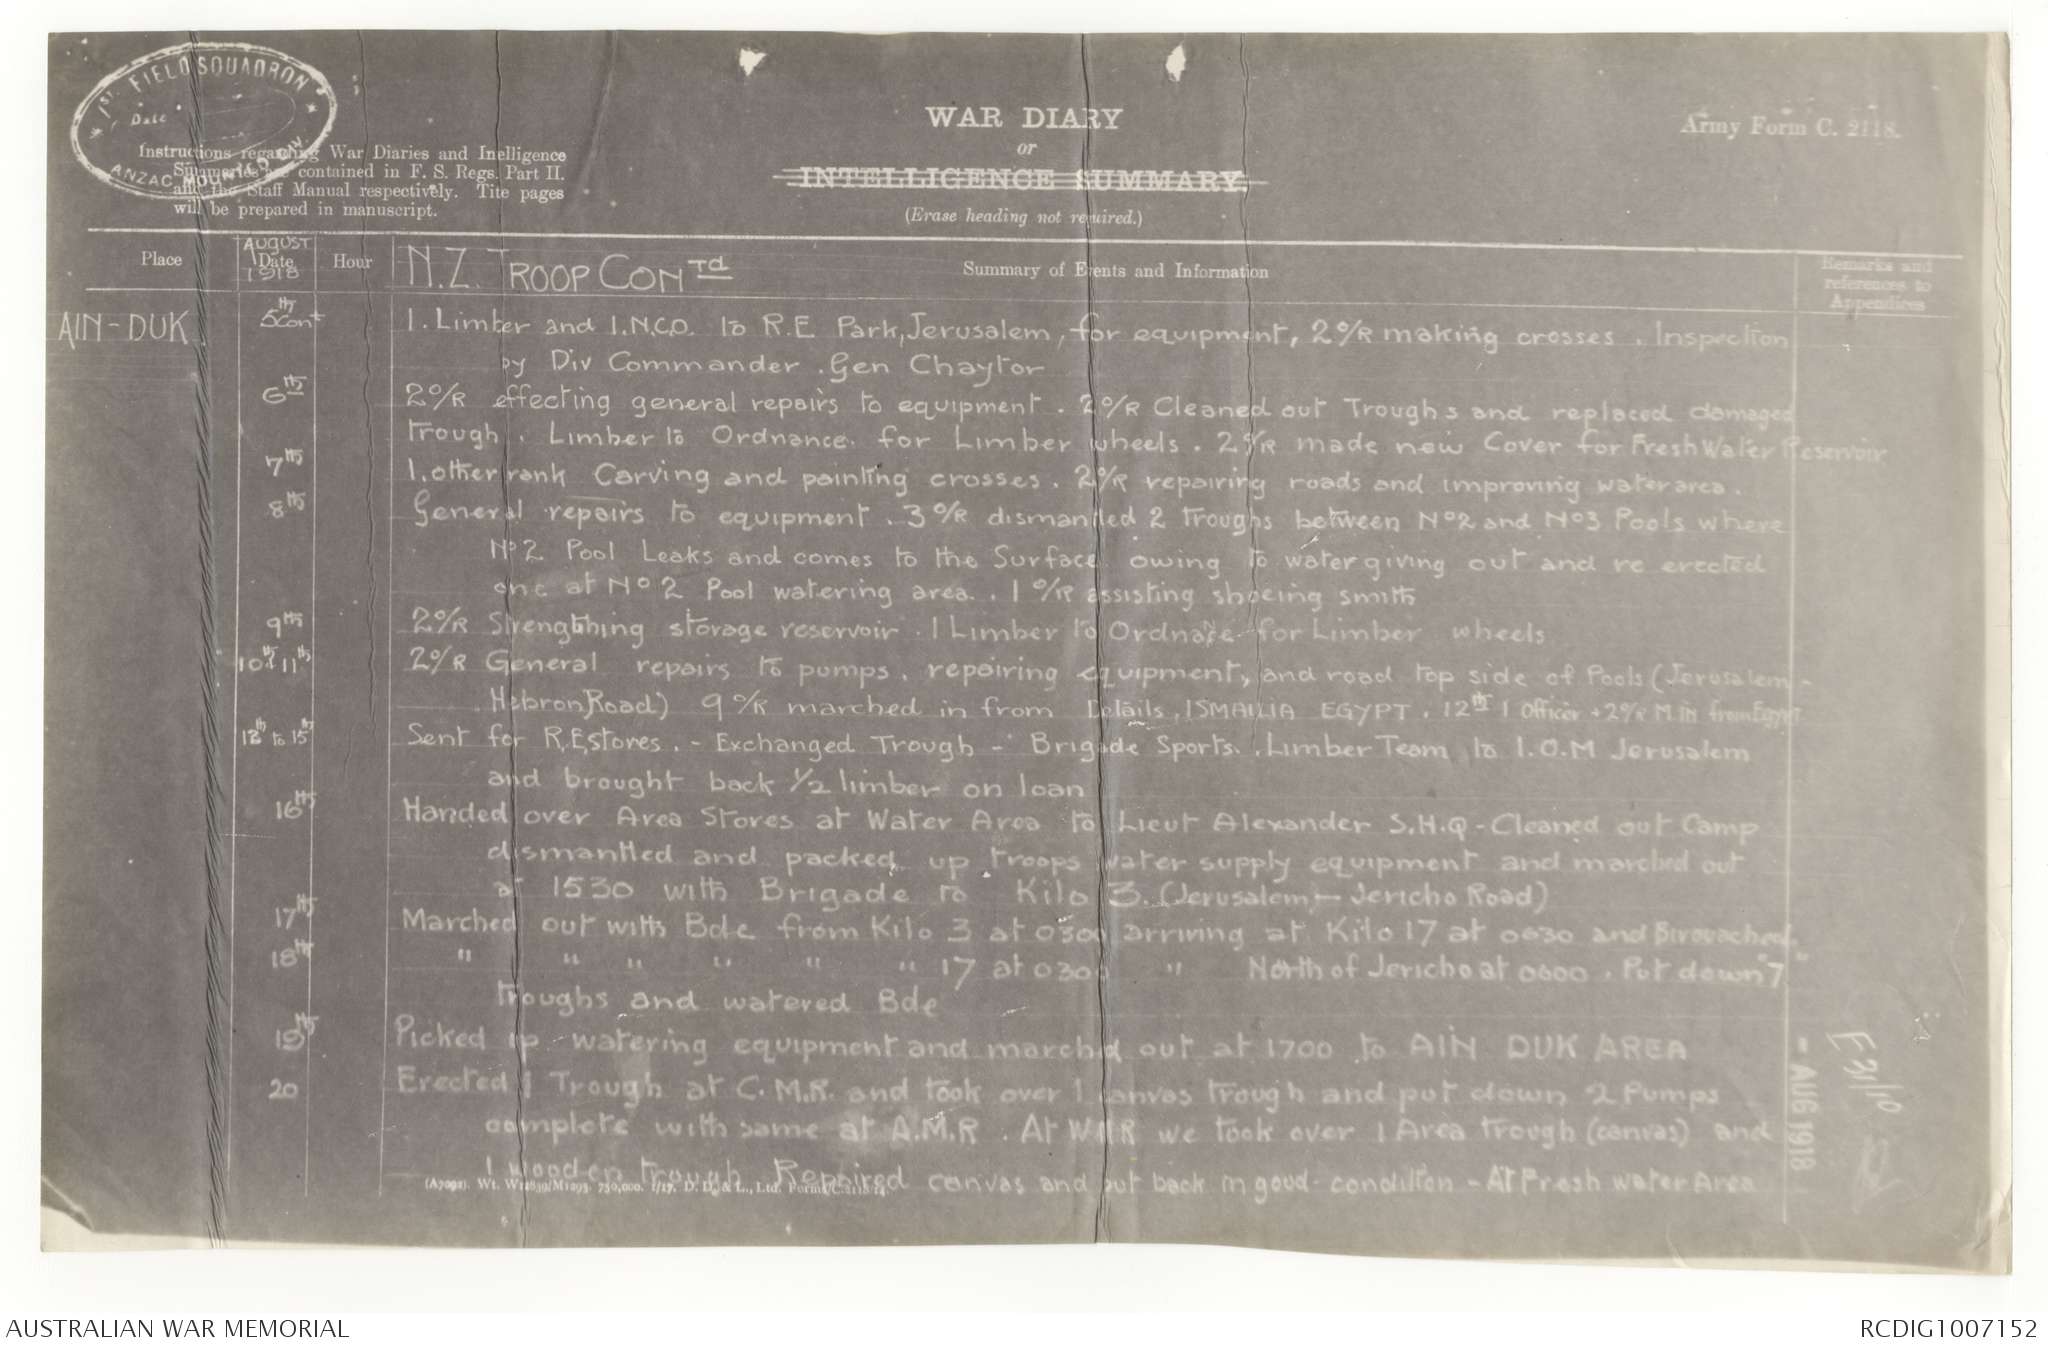 1ST. FIELD SQUADRON
Date
ANZAC MOUNTED DIV.
Army Form C. 2118.
WAR DIARY
or
INTELLIGENCE SUMMARY.
(Erase heading not required.)
Instructions regarding War Diaries and Inelligence
Summaries are contained in F. S. Regs. Part II.
and the Staff Manual respectively. Tite pages
will be prepared in manuscript.
Place
AUGUST
Date
1918
Hour
N.Z. TROOP CONTD
Summary of Events and Information
Remarks and
references to
Appendices
AIN-DUK. 5th Cont 1. Limber and 1.N.C.O. to R.E Park, Jerusalem, for equipment, 2 O/R making crosses. Inspection
by Div Commander. Gen Chaytor
6th 2 O/R effecting general repairs to equipment. 2 O/R Cleaned out Troughs and replaced damaged
trough. Limber to Ordnance. for Limber wheels. 2 O/R made new Cover for Fresh Water Reservoir
7th 1. other rank Carving and painting crosses. 2 O/R repairing roads and improving water area.
8th General repairs to equipment. 3 O/R dismantled 2 troughs between No 2 and No 3 Pools where
No 2 Pool Leaks and comes to the Surface owing to water giving out and re erected
one at No 2 Pool watering area. 1 O/R assisting shoeing smith
9th 2 O/R Strengthning storage reservoir. 1 Limber to Ordnance for Limber wheels
10th 11th 2 O/R General repairs to pumps. repairing equipment, and road top side of Pools (Jerusalem-
Hebron Road) 9 O/R marched in from Details, ISMAILIA EGYPT. 12th 1 Officer + 2 O/R M. in from Egypt
12th to 15th Sent for R.E stores. - Exchanged Trough - Brigade Sports. Limber Team to I.O.M Jerusalem
and brought back 1/2 limber on loan
16th Handed over Area Stores at Water Area to Lieut Alexander S.H.Q - Cleaned out Camp
dismantled and packed up troops water supply equipment and marched out
at 1530 with Brigade to Kilo 3. (Jerusalem - Jericho Road)
17th Marched out with Bde from Kilo 3 at 0300 arriving at Kilo 17 at 0630 and Bivovached
18th " " " " " " 17 at 0300 " North of Jericho at 0600. Put down 7
troughs and watered Bde
19th Picked up watering equipment and marched out at 1700 to AIN DUK AREA
20 Erected 1 Trough at C.M.R. and took over 1 canvas trough and put down 2 Pumps
complete with same at A.M.R. At WMR we took over 1 Area trough (canvas) and
1 wooden trough. Repaired canvas and put back in good condition - At Fresh water Area
- AUG 1918
(A7092). Wt. W12839/M1293. 750,000. 1/17. D. D. & L., Ltd. Forms/C.2118/14.
AUSTRALIAN WAR MEMORIAL
RCDIG1007152